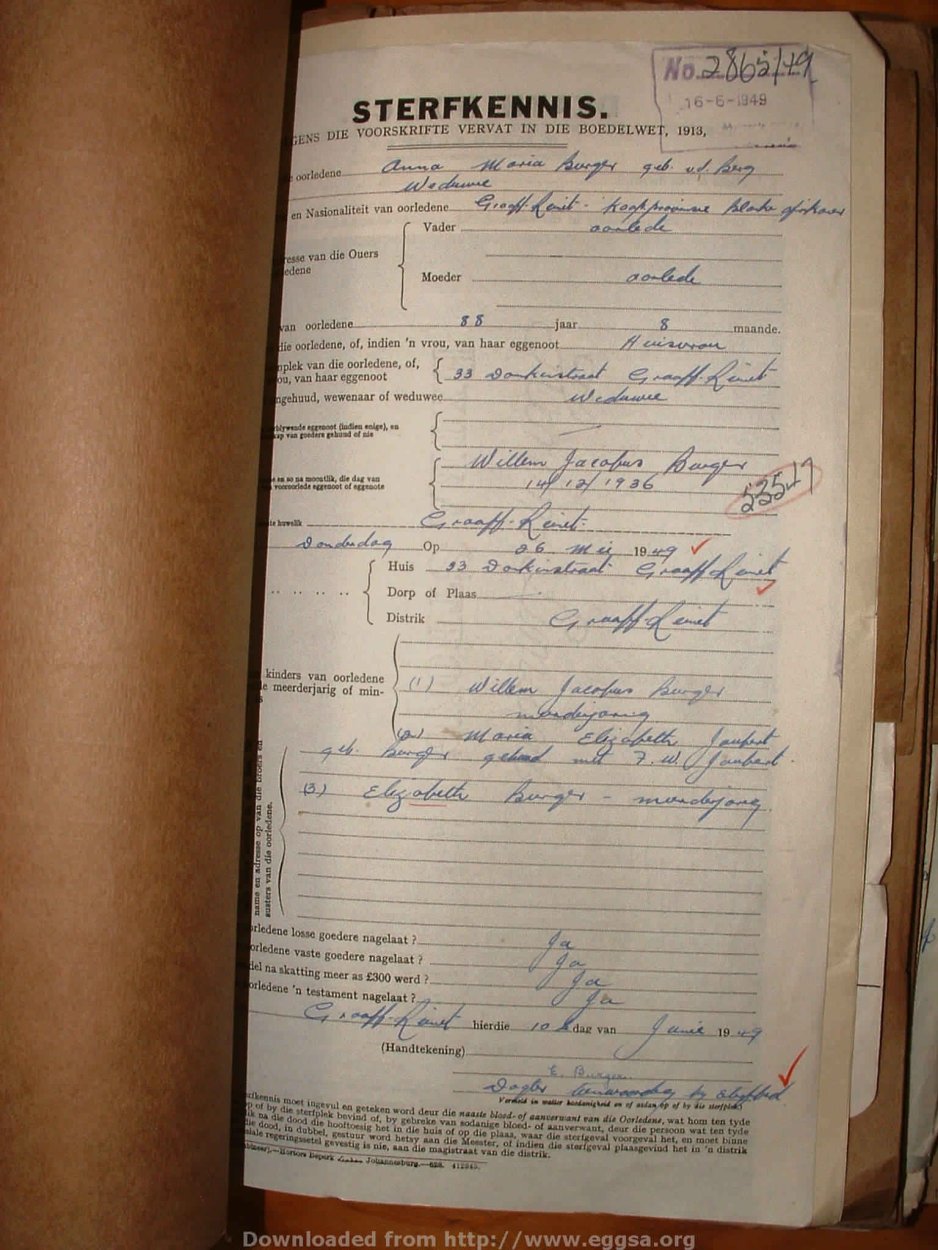 No. 2865/49
16-6-1949
STERFKENNIS.
GENS DIE VOORSKRIFTE VERVAT IN DIE BOEDELWET, 1913,
oorledene Anna Maria Burger geb. v.d. Berg
Weduwee
en Nasionaliteit van oorledene Graaff-Reinet - Kaapprovinsie Blanke Afrikaner
Vader oorlede
resse van die Ouers
edene
Moeder oorlede
van oorledene 88 jaar 8 maande.
die oorledene, of, indien 'n vrou, van haar eggenoot Huisvrou
nplek van die oorledene, of,
ou, van haar eggenoot 33 Donkinstraat Graaff-Reinet
ngehuud, wewenaar of weduwee Weduwee
rblywende eggenoot (indien enige), en
kap van goedere gehuud of nie
Willem Jacobus Burger
e en so na moontlik, die dag van
vooroorlede eggenoot of eggenote 14/12/1936
5354/7
ste huwelik Graaff-Reinet
Donderdag Op 26 Mei 1949
Huis 33 Donkinstraat Graaff-Reinet
Dorp of Plaas
Distrik Graaff-Reinet
kinders van oorledene
e meerderjarig of min- (1) Willem Jacobus Burger
meerderjarig
(2) Maria Elizabeth Joubert
geb. Burger gehuud met F. W. Joubert.
(3) Elizabeth Burger - meerderjarig
name en adresse op van die broers en
susters van die oorledene.
orledene losse goedere nagelaat ? Ja
orledene vaste goedere nagelaat ? Ja
del na skatting meer as £300 werd ? Ja
orledene 'n testament nagelaat ? Ja
Graaff-Reinet hierdie 10 dag van Junie 1949
(Handtekening)
E. Burger
Dogter teenwoordig by sterfbed
Vermeld in watter hoedanigheid en of aldan op of by die sterfplek
rfkennis moet ingevul en geteken word deur die naaste bloed- of aanverwant van die Oorledene, wat hom ten tyde
p of by die sterfplek bevind of, by gebreke van sodanige bloed- of aanverwant, deur die persoon wat ten tyde
ik na die dood die hooftoesig het in die huis of op die plaas, waar die sterfgeval voorgeval het, en moet binne
die dood, in dubbel, gestuur word hetsy aan die Meester, of indien die sterfgeval plaasgevind het in 'n distrik
siale regeringssetel gevestig is nie, aan die magistraat van die distrik.
Hortors Beperk Johannesburg.—628. 412949.
Downloaded from http://www.eggsa.org